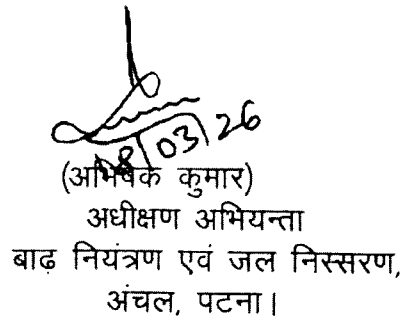 18/03/26
(अभिषेक कुमार)
अधीक्षण अभियन्ता
बाढ़ नियंत्रण एवं जल निस्सरण,
अंचल, पटना।